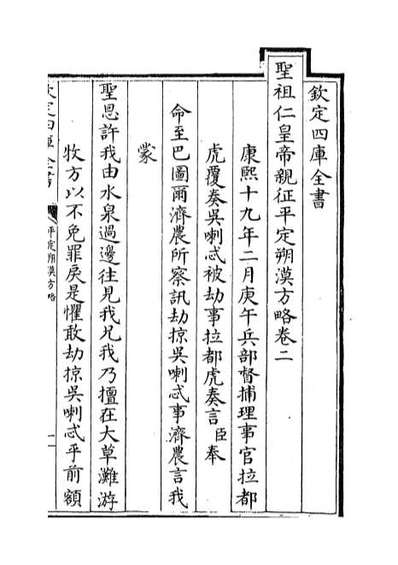 欽定四庫全書
聖祖仁皇帝親征平定朔漠方略卷二
康熙十九年二月庚午兵部督捕理事官拉都
虎覆奏吳喇忒被劫事拉都虎奏言臣奉
命至巴圖爾濟農所察訊劫掠吳喇忒事濟農言我
蒙
聖恩許我由水泉過邊往見我兄我乃擅在大草灘游
牧方以不免罪戾是懼敢劫掠吳喇忒乎前額
欽定四庫全書
平定朔漠方略